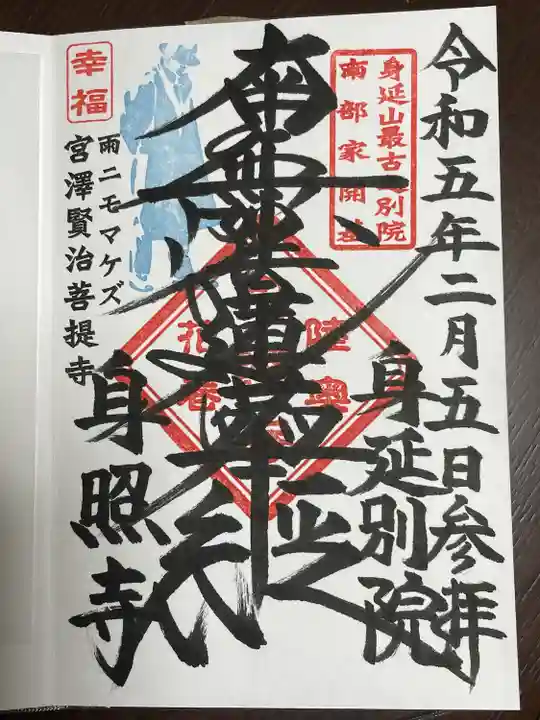 令和五年二月五日参拝
身延別院
身延山最古之別院
南部家開基
南無妙法蓮華経
陸奥
花巻
幸福
雨ニモマケズ
宮澤賢治菩提寺
身照寺